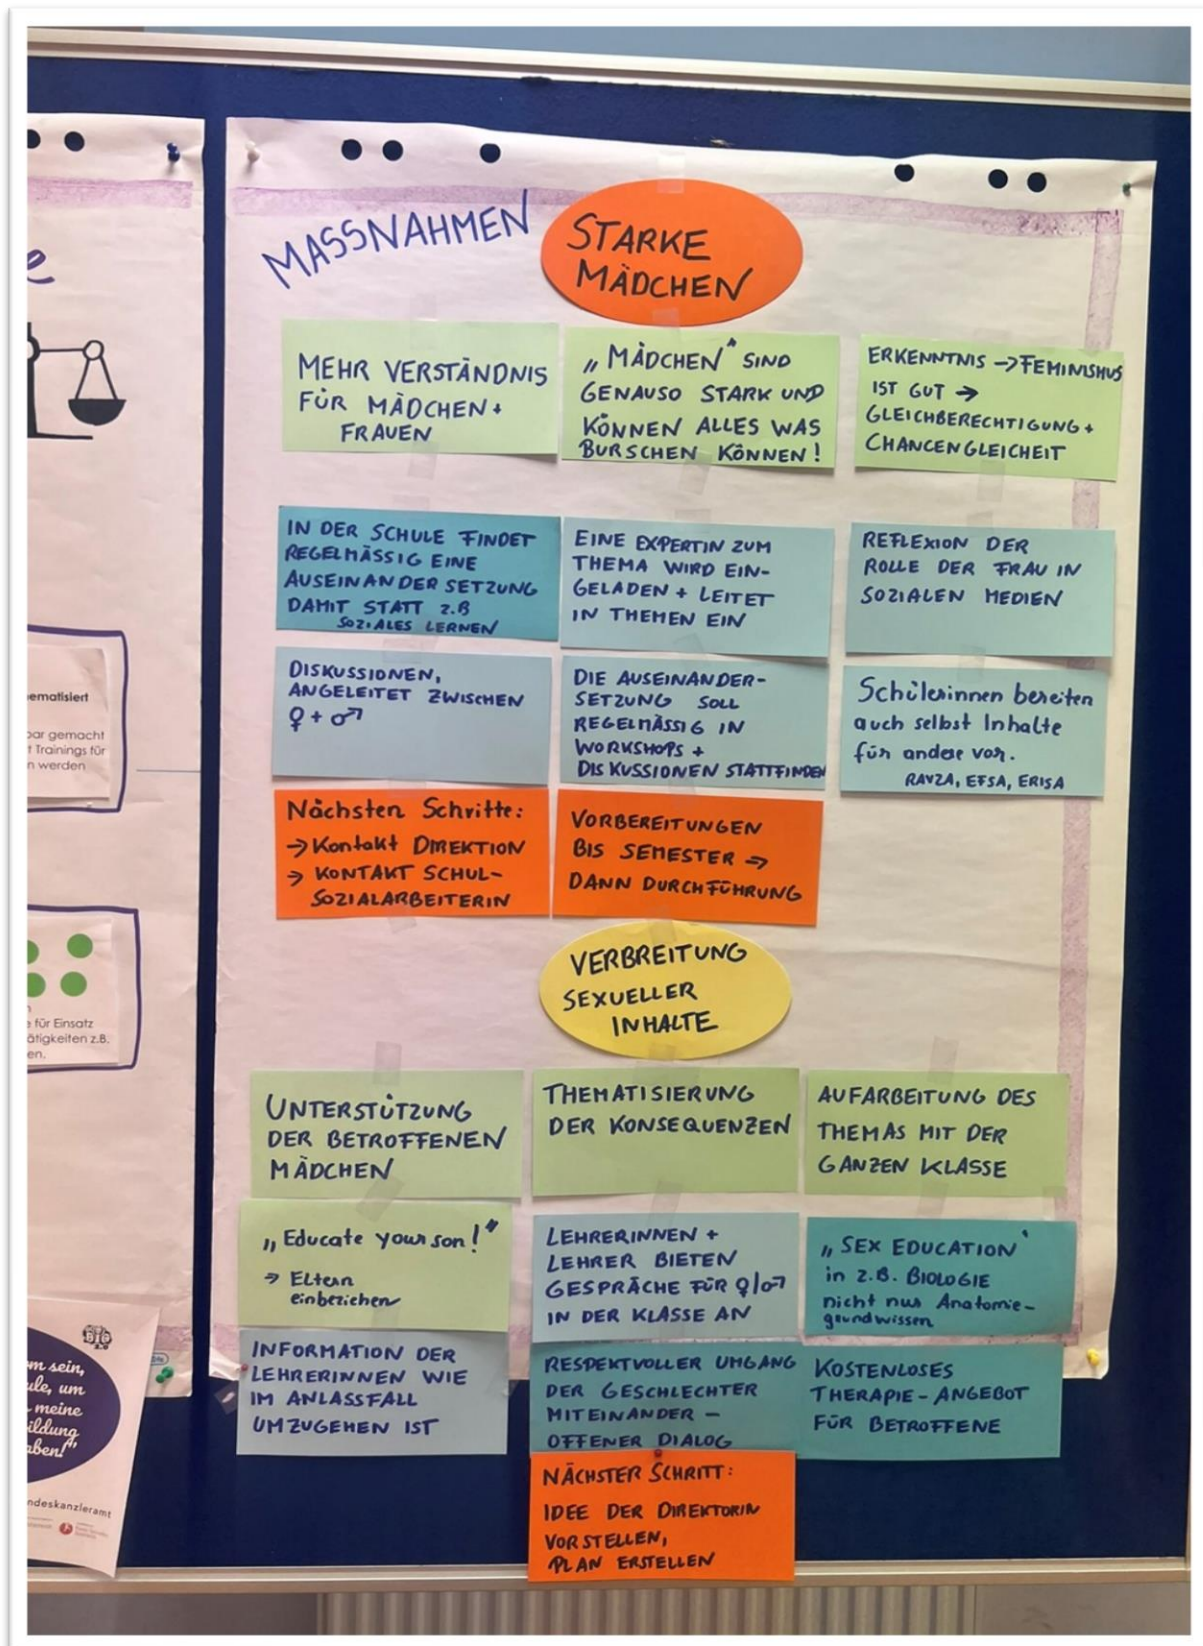 MASSNAHMEN
STARKE
MÄDCHEN
MEHR VERSTÄNDNIS
FÜR MÄDCHEN +
FRAUEN
„MÄDCHEN" SIND
GENAUSO STARK UND
KÖNNEN ALLES WAS
BURSCHEN KÖNNEN!
ERKENNTNIS → FEMINISMUS
IST GUT →
GLEICHBERECHTIGUNG +
CHANCENGLEICHEIT
IN DER SCHULE FINDET
REGELMÄSSIG EINE
AUSEINANDERSETZUNG
DAMIT STATT Z.B
SOZIALES LERNEN
EINE EXPERTIN ZUM
THEMA WIRD EIN-
GELADEN + LEITET
IN THEMEN EIN
REFLEXION DER
ROLLE DER FRAU IN
SOZIALEN MEDIEN
DISKUSSIONEN,
ANGELEITET ZWISCHEN
♀ + ♂
DIE AUSEINANDER-
SETZUNG SOLL
REGELMÄSSIG IN
WORKSHOPS +
DISKUSSIONEN STATTFINDEN
Schülerinnen bereiten
auch selbst Inhalte
für andere vor.
RAVZA, EFSA, ERISA
Nächsten Schritte:
→ Kontakt DIREKTION
→ KONTAKT SCHUL-
SOZIALARBEITERIN
VORBEREITUNGEN
BIS SEMESTER ⇒
DANN DURCHFÜHRUNG
VERBREITUNG
SEXUELLER
INHALTE
UNTERSTÜTZUNG
DER BETROFFENEN
MÄDCHEN
THEMATISIERUNG
DER KONSEQUENZEN
AUFARBEITUNG DES
THEMAS MIT DER
GANZEN KLASSE
„Educate your son!"
→ Eltern
einbeziehen
LEHRERINNEN +
LEHRER BIETEN
GESPRÄCHE FÜR ♀/♂
IN DER KLASSE AN
„SEX EDUCATION"
in z.B. BIOLOGIE
nicht nur Anatomie-
grundwissen
INFORMATION DER
LEHRERINNEN WIE
IM ANLASSFALL
UMZUGEHEN IST
RESPEKTVOLLER UMGANG
DER GESCHLECHTER
MITEINANDER -
OFFENER DIALOG
KOSTENLOSES
THERAPIE-ANGEBOT
FÜR BETROFFENE
NÄCHSTER SCHRITT:
IDEE DER DIREKTORIN
VORSTELLEN,
PLAN ERSTELLEN
e
ematisiert
bar gemacht
t Trainings für
n werden
e für Einsatz
ätigkeiten z.B.
en.
m sein,
ule, um
meine
ildung
aben!"
ndeskanzleramt